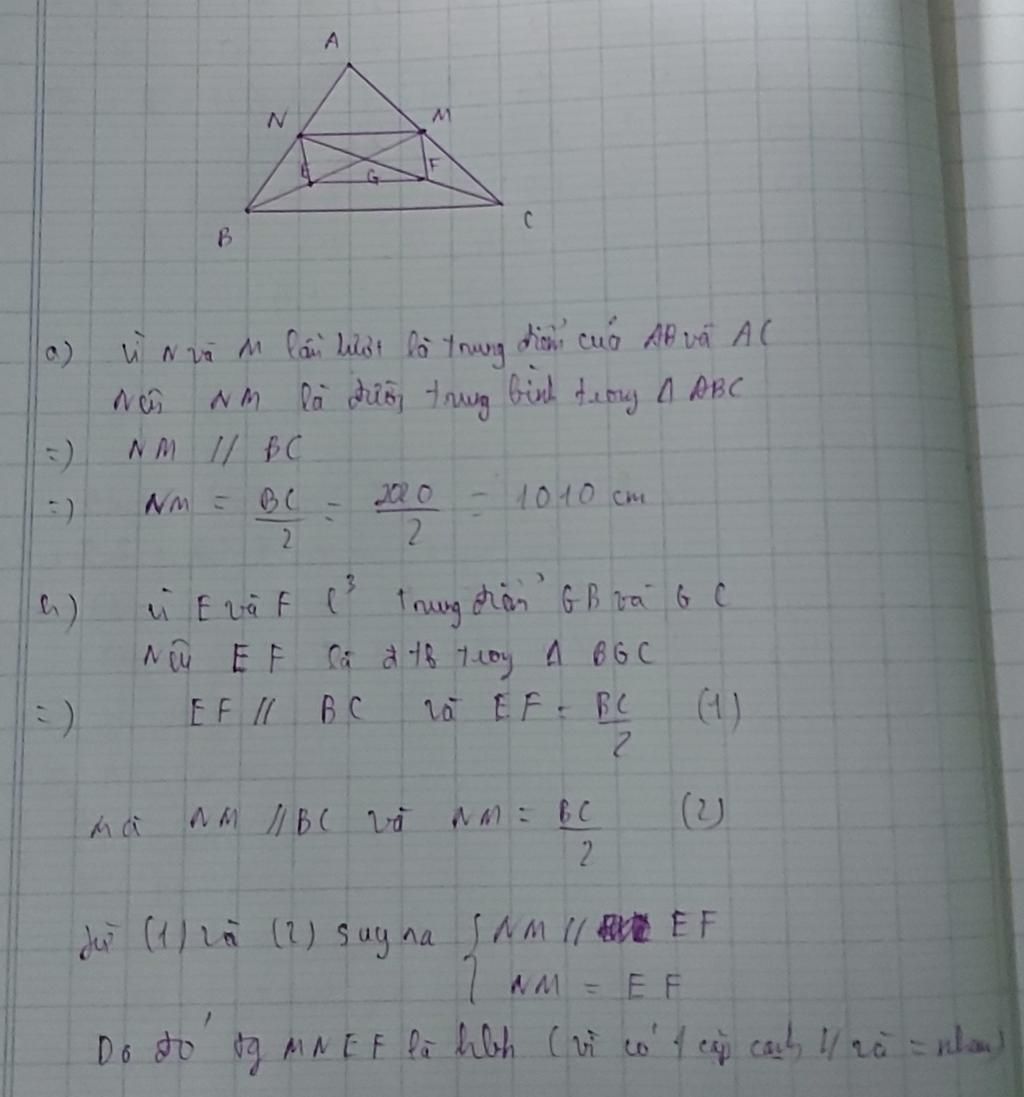 A
N M
E G F
B C
a) Vì N và M lần lượt là trung điểm của AB và AC
Nên NM là đường trung bình trong Δ ABC
=) NM // BC
=) NM = BC/2 = 2020/2 = 1010 cm
b) Vì E và F là trung điểm GB và GC
Nên EF là đtb trong Δ BGC
=) EF // BC và EF = BC/2 (1)
mà NM // BC và NM = BC/2 (2)
Từ (1) và (2) suy ra { NM // EF
NM = EF
Do đó tg MNEF là hbh (vì có 1 cặp cạnh // và = nhau)